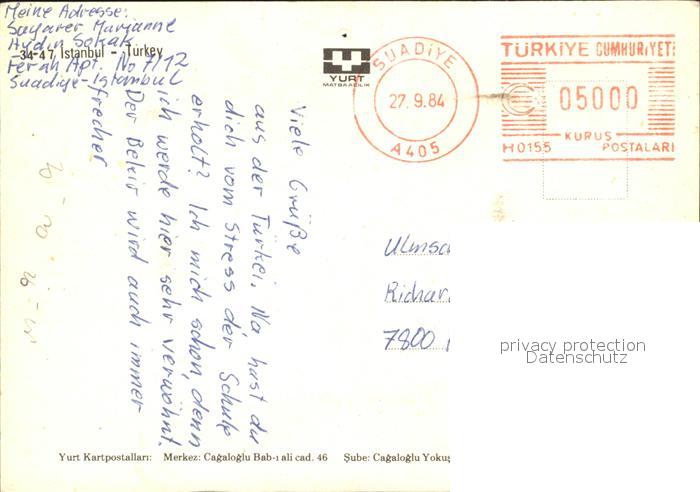 Meine Adresse:
Sayarer Marianne
Aydin Sokak
-34-47 Istanbul - Türkey
Ferah Apt. No 7/12
Suadiye - Istanbul
Viele Grüße
aus der Türkei. Na, hast du
dich vom Stress der Schule
erholt? Ich mich schon, denn
ich werde hier sehr verwöhnt.
Der Bekir wird auch immer
frecher
YURT
MATBAACILIK
SUADİYE
27.9.84
A405
TÜRKİYE CUMHURİYETİ
05000
KURUŞ
H0155 POSTALARI
Ulmsa
Richar
7800
privacy protection
Datenschutz
Yurt Kartpostalları: Merkez: Cağaloğlu Bab-ı ali cad. 46 Şube: Cağaloğlu Yokuş